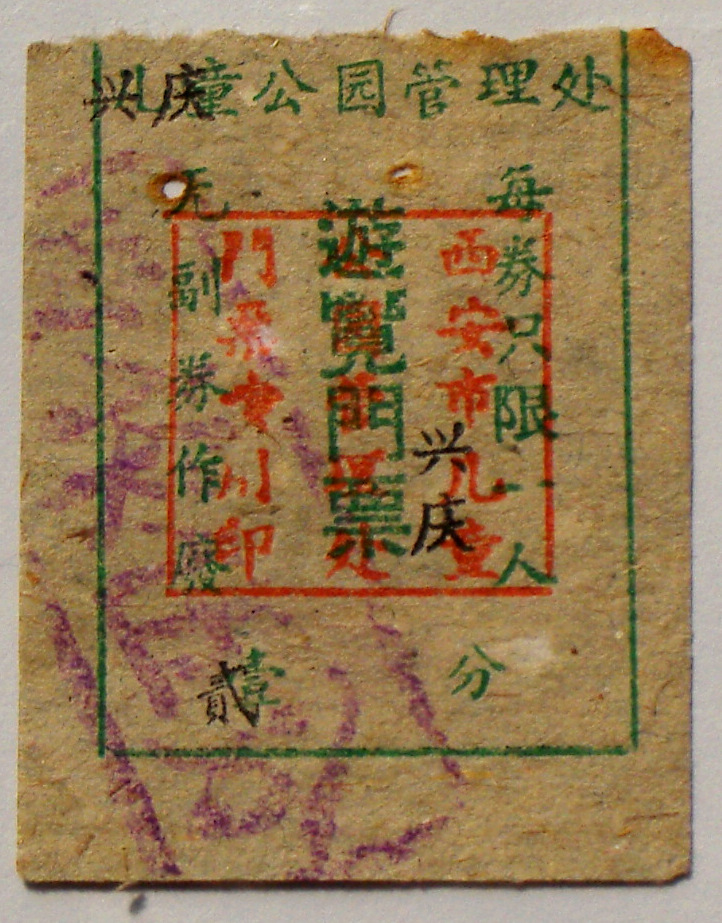 儿童公园管理处
兴庆
每券只限一人
遊覽門票
无副券作廢
西安市儿童
門票专用印
兴庆
壹分
貳